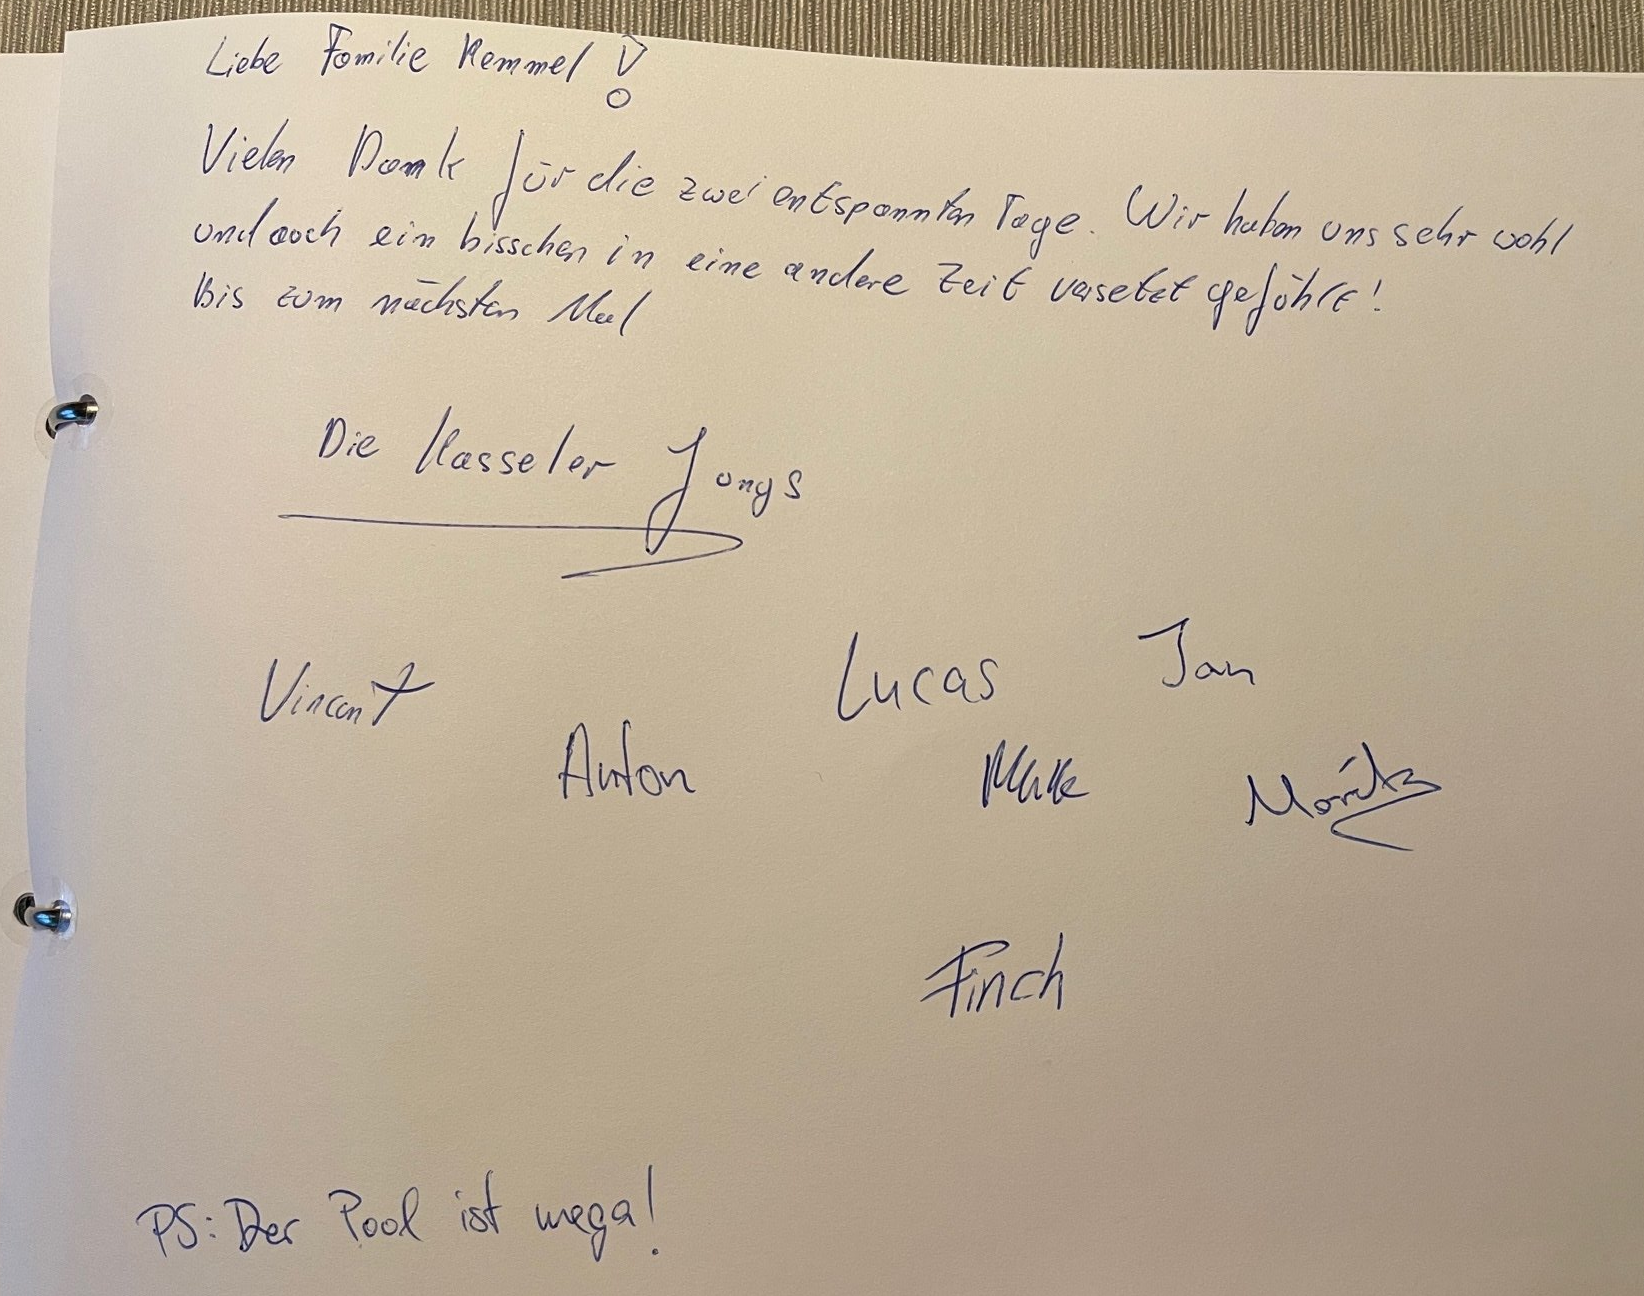 Liebe Familie Hemmel!
Vielen Dank für die zwei entspannten Tage. Wir haben uns sehr wohl
und auch ein bisschen in eine andere Zeit versetzt gefühlt!
Bis zum nächsten Mal
Die Kasseler Jungs
Vincent
Lucas Jan
Anton
Moritz
Finch
PS: Der Pool ist mega!